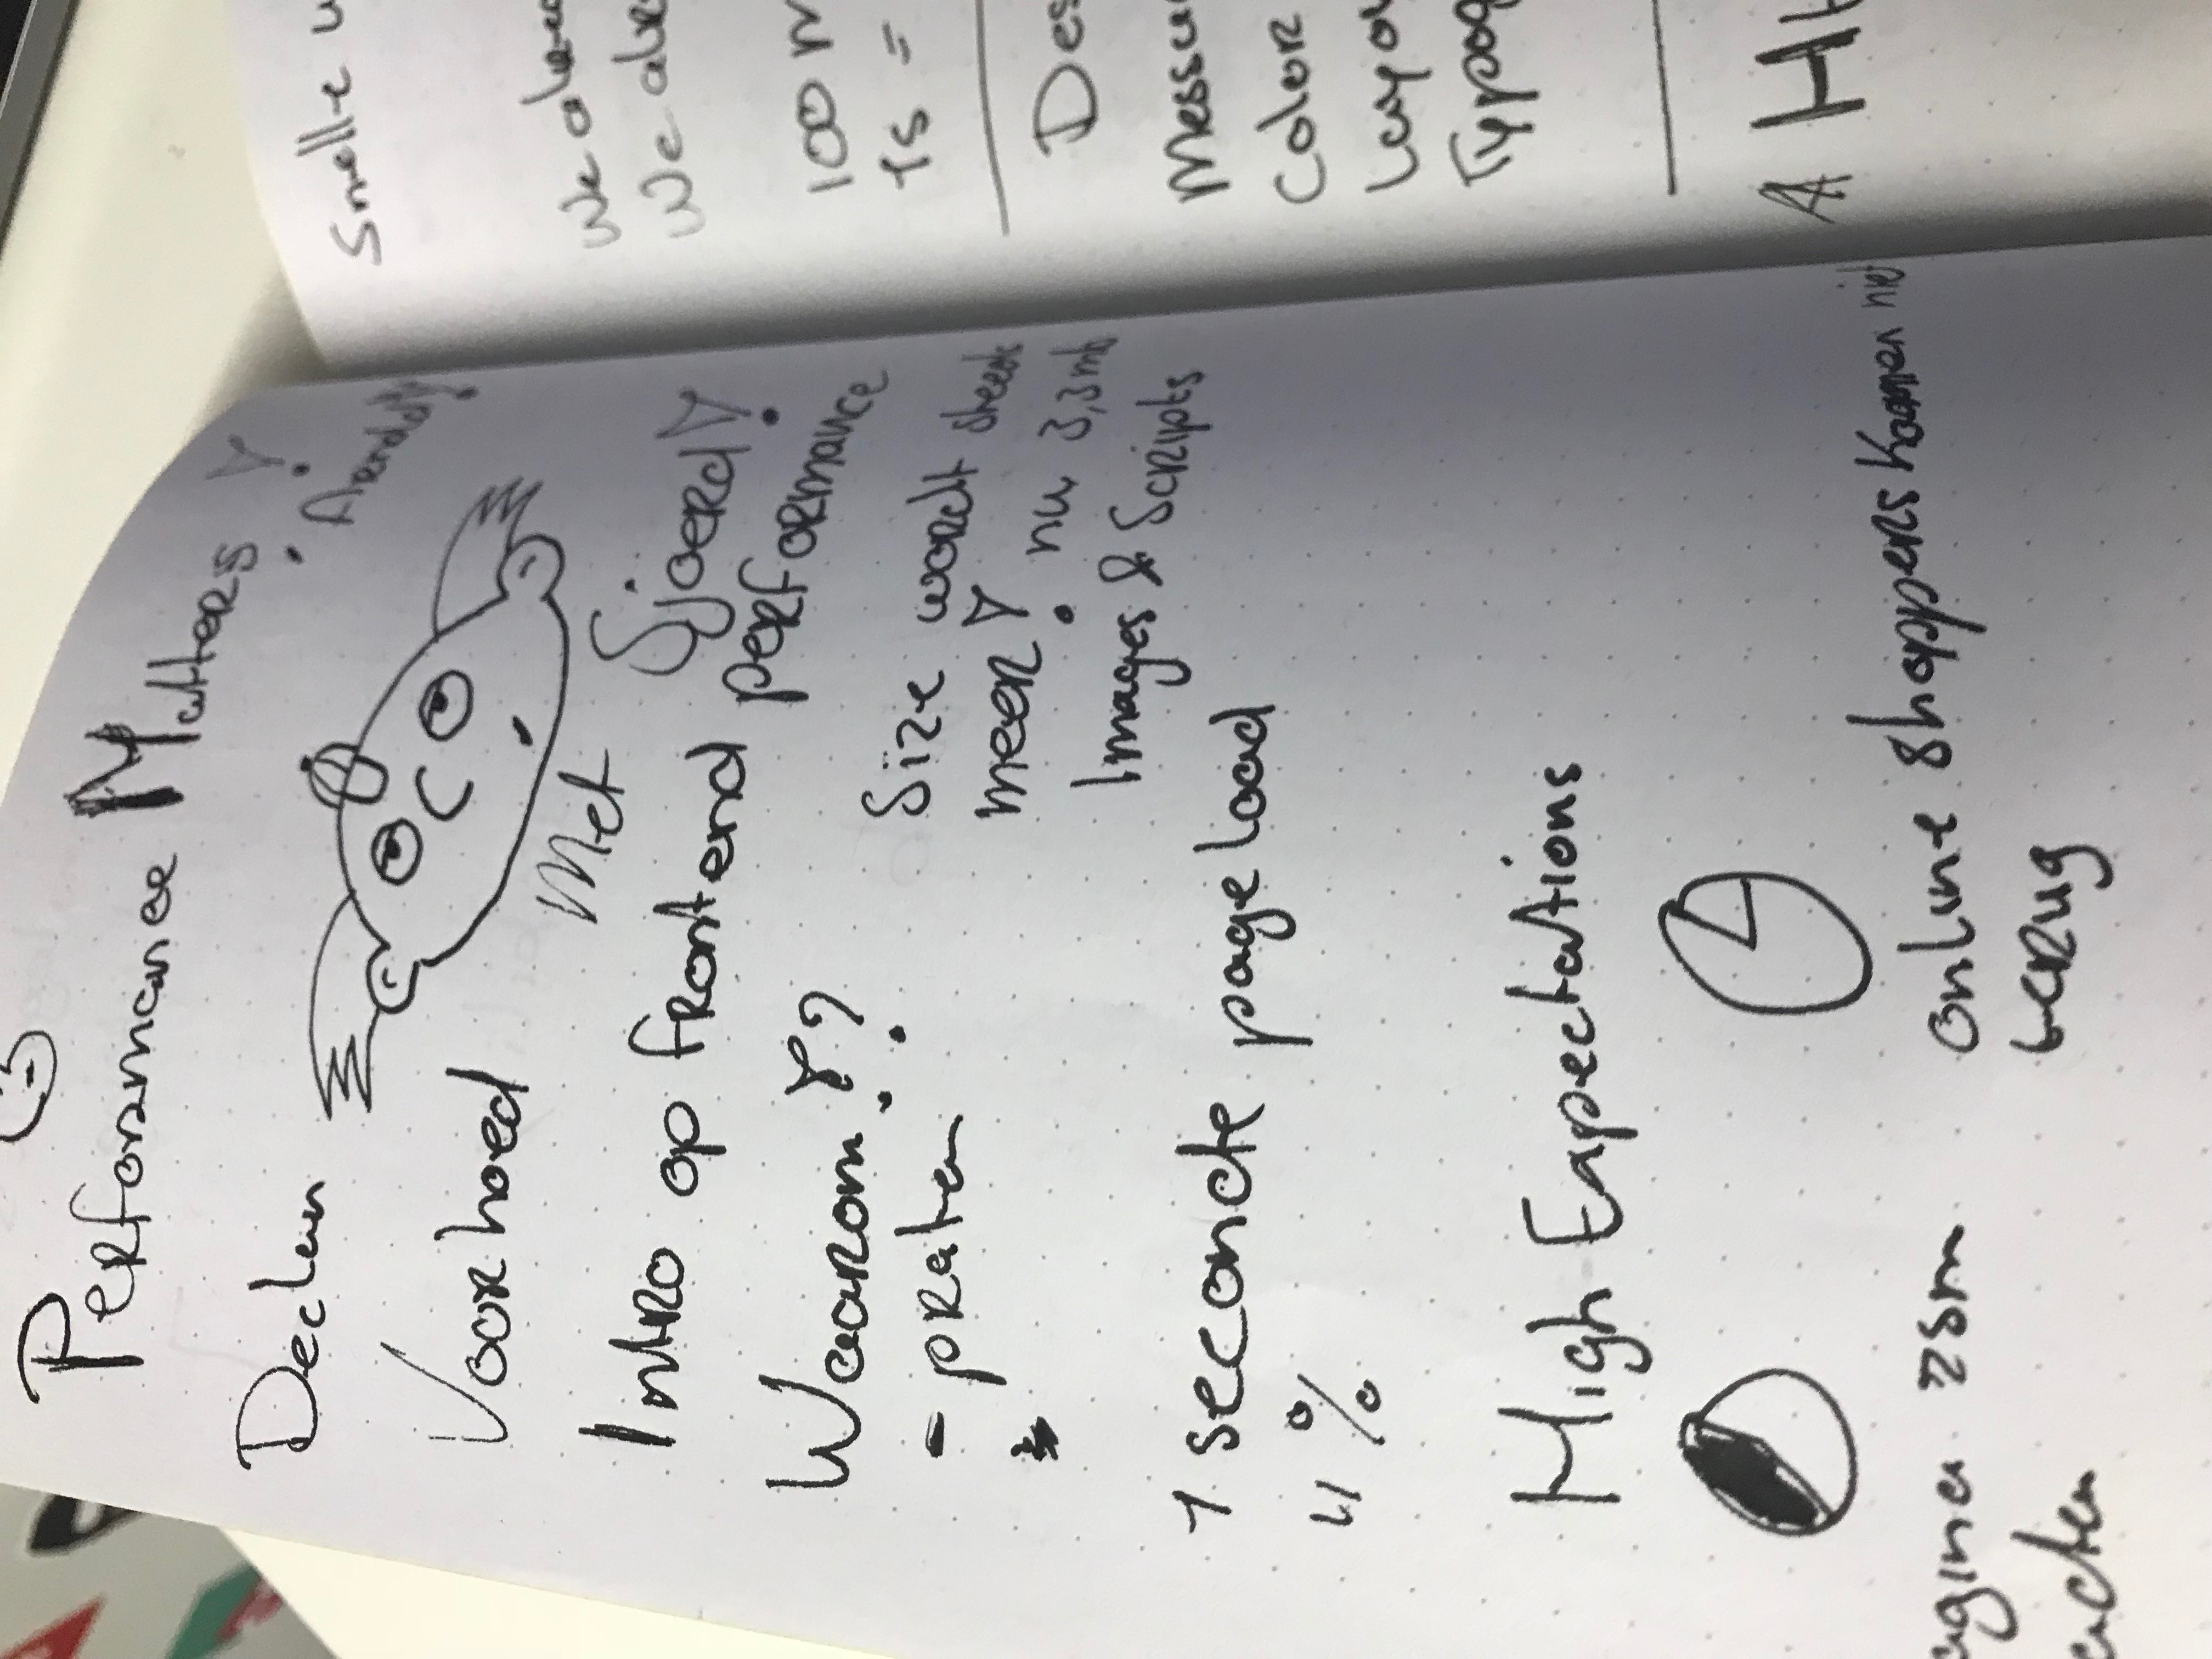 3
Performance Matters!
Declan
Voorhoed
Met Sjoerd!
Intro op frontend performance
Waarom!?
- praten
Size wordt steeds
meer! nu 3,3mb
Images & Scripts
1 seconde pageload
%
High Expectations
agina
online shoppers komen niet
terug
acten
Snelle
We
We
100 m
1s =
Des
Color
Layou
Typog